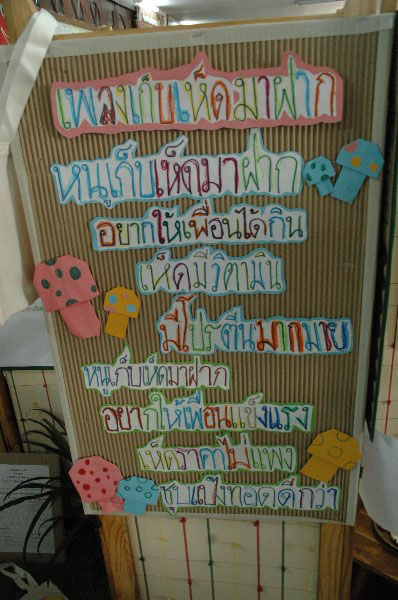 เพลงเก็บเห็ดมาฝาก
หนูเก็บเห็ดมาฝาก
อยากให้เพื่อนได้กิน
เห็ดมีวิตามิน
มีโปรตีนมากมาย
หนูเก็บเห็ดมาฝาก
อยากให้เพื่อนแข็งแรง
เห็ดราคาไม่แพง
ชุบแป้งทอดดีกว่า